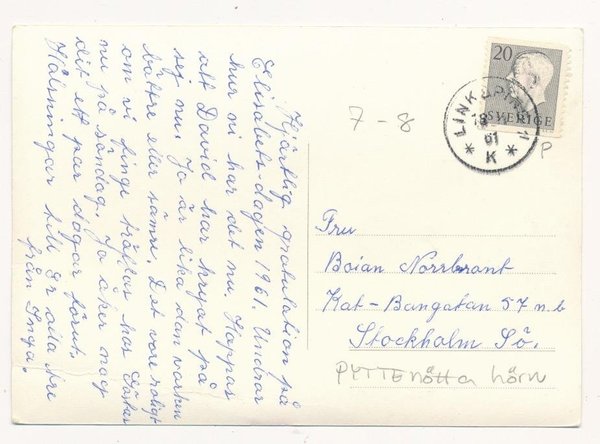 Hjärtlig gratulation på
Elisabets-dagen 1961. Undrar
hur ni har det nu. Hoppas
att David har kryat på
sej nu. Ja är lika dan varken
bättre eller sämre. Det vore roligt
om vi finge träffas hos Syster
nu på söndag. Ja åker nog
dit ett par dagar förut.
Hälsningar till Er alla tre
från Inga.
20
SVERIGE
LINKÖPING 1
18
61
K
7-8
P
Fru
Boian Norrbrant
Kat-Bangatan 57 n.b
Stockholm Sö.
PYTTEnötta hörn